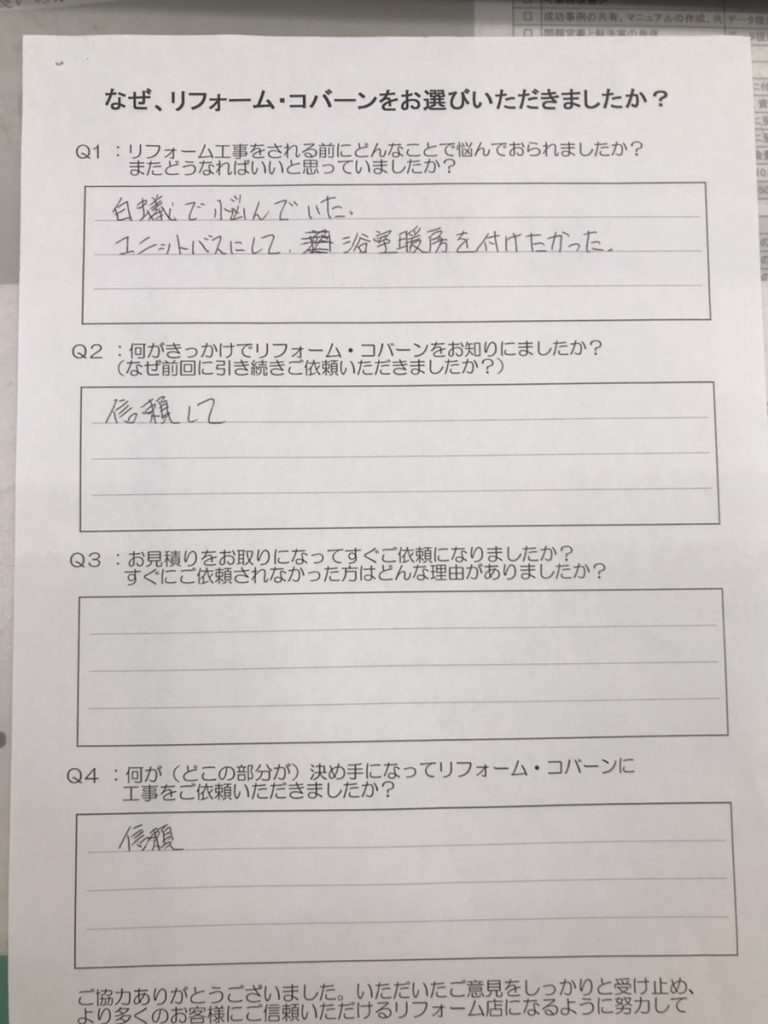 成功事例の共有、マニュアルの作成、共
なぜ、リフォーム・コバーンをお選びいただきましたか？
Q1：リフォーム工事をされる前にどんなことで悩んでおられましたか？
またどうなればいいと思っていましたか？
白蟻で悩んでいた.
ユニットバスにして、浴室暖房を付けたかった.
Q2：何がきっかけでリフォーム・コバーンをお知りにましたか？
（なぜ前回に引き続きご依頼いただきましたか？）
信頼して
Q3：お見積りをお取りになってすぐご依頼になりましたか？
すぐにご依頼されなかった方はどんな理由がありましたか？
Q4：何が（どこの部分が）決め手になってリフォーム・コバーンに
工事をご依頼いただきましたか？
信頼
ご協力ありがとうございました。いただいたご意見をしっかりと受け止め、
より多くのお客様にご信頼いただけるリフォーム店になるように努力して